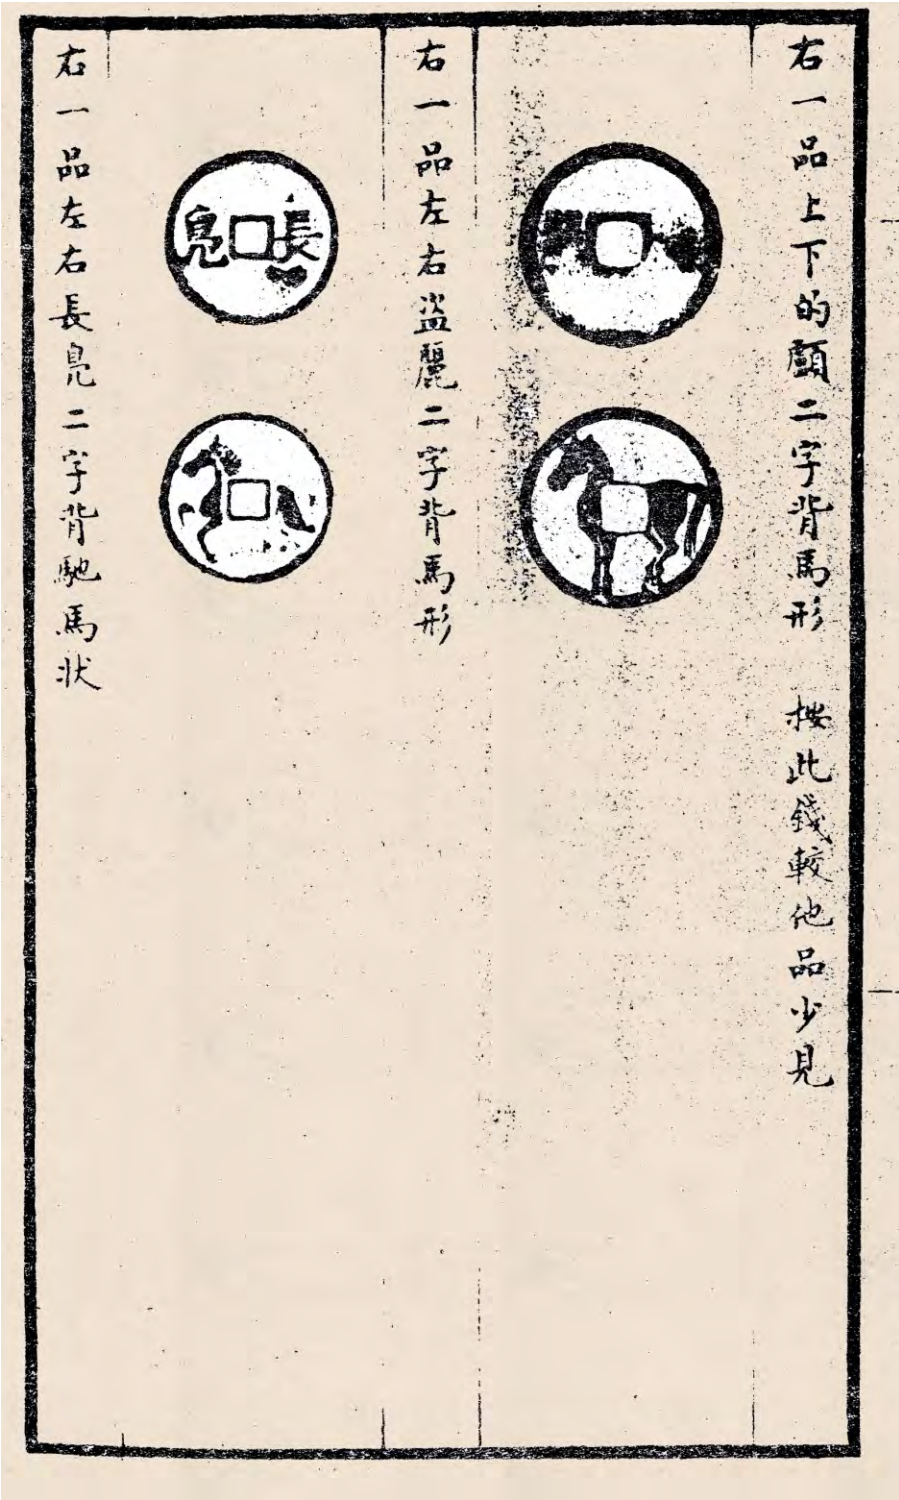 右一品上下的顱二字背馬形　按此錢較他品少見
右一品左右盜麗二字背馬形
長鳧
右一品左右長鳧二字背馳馬状